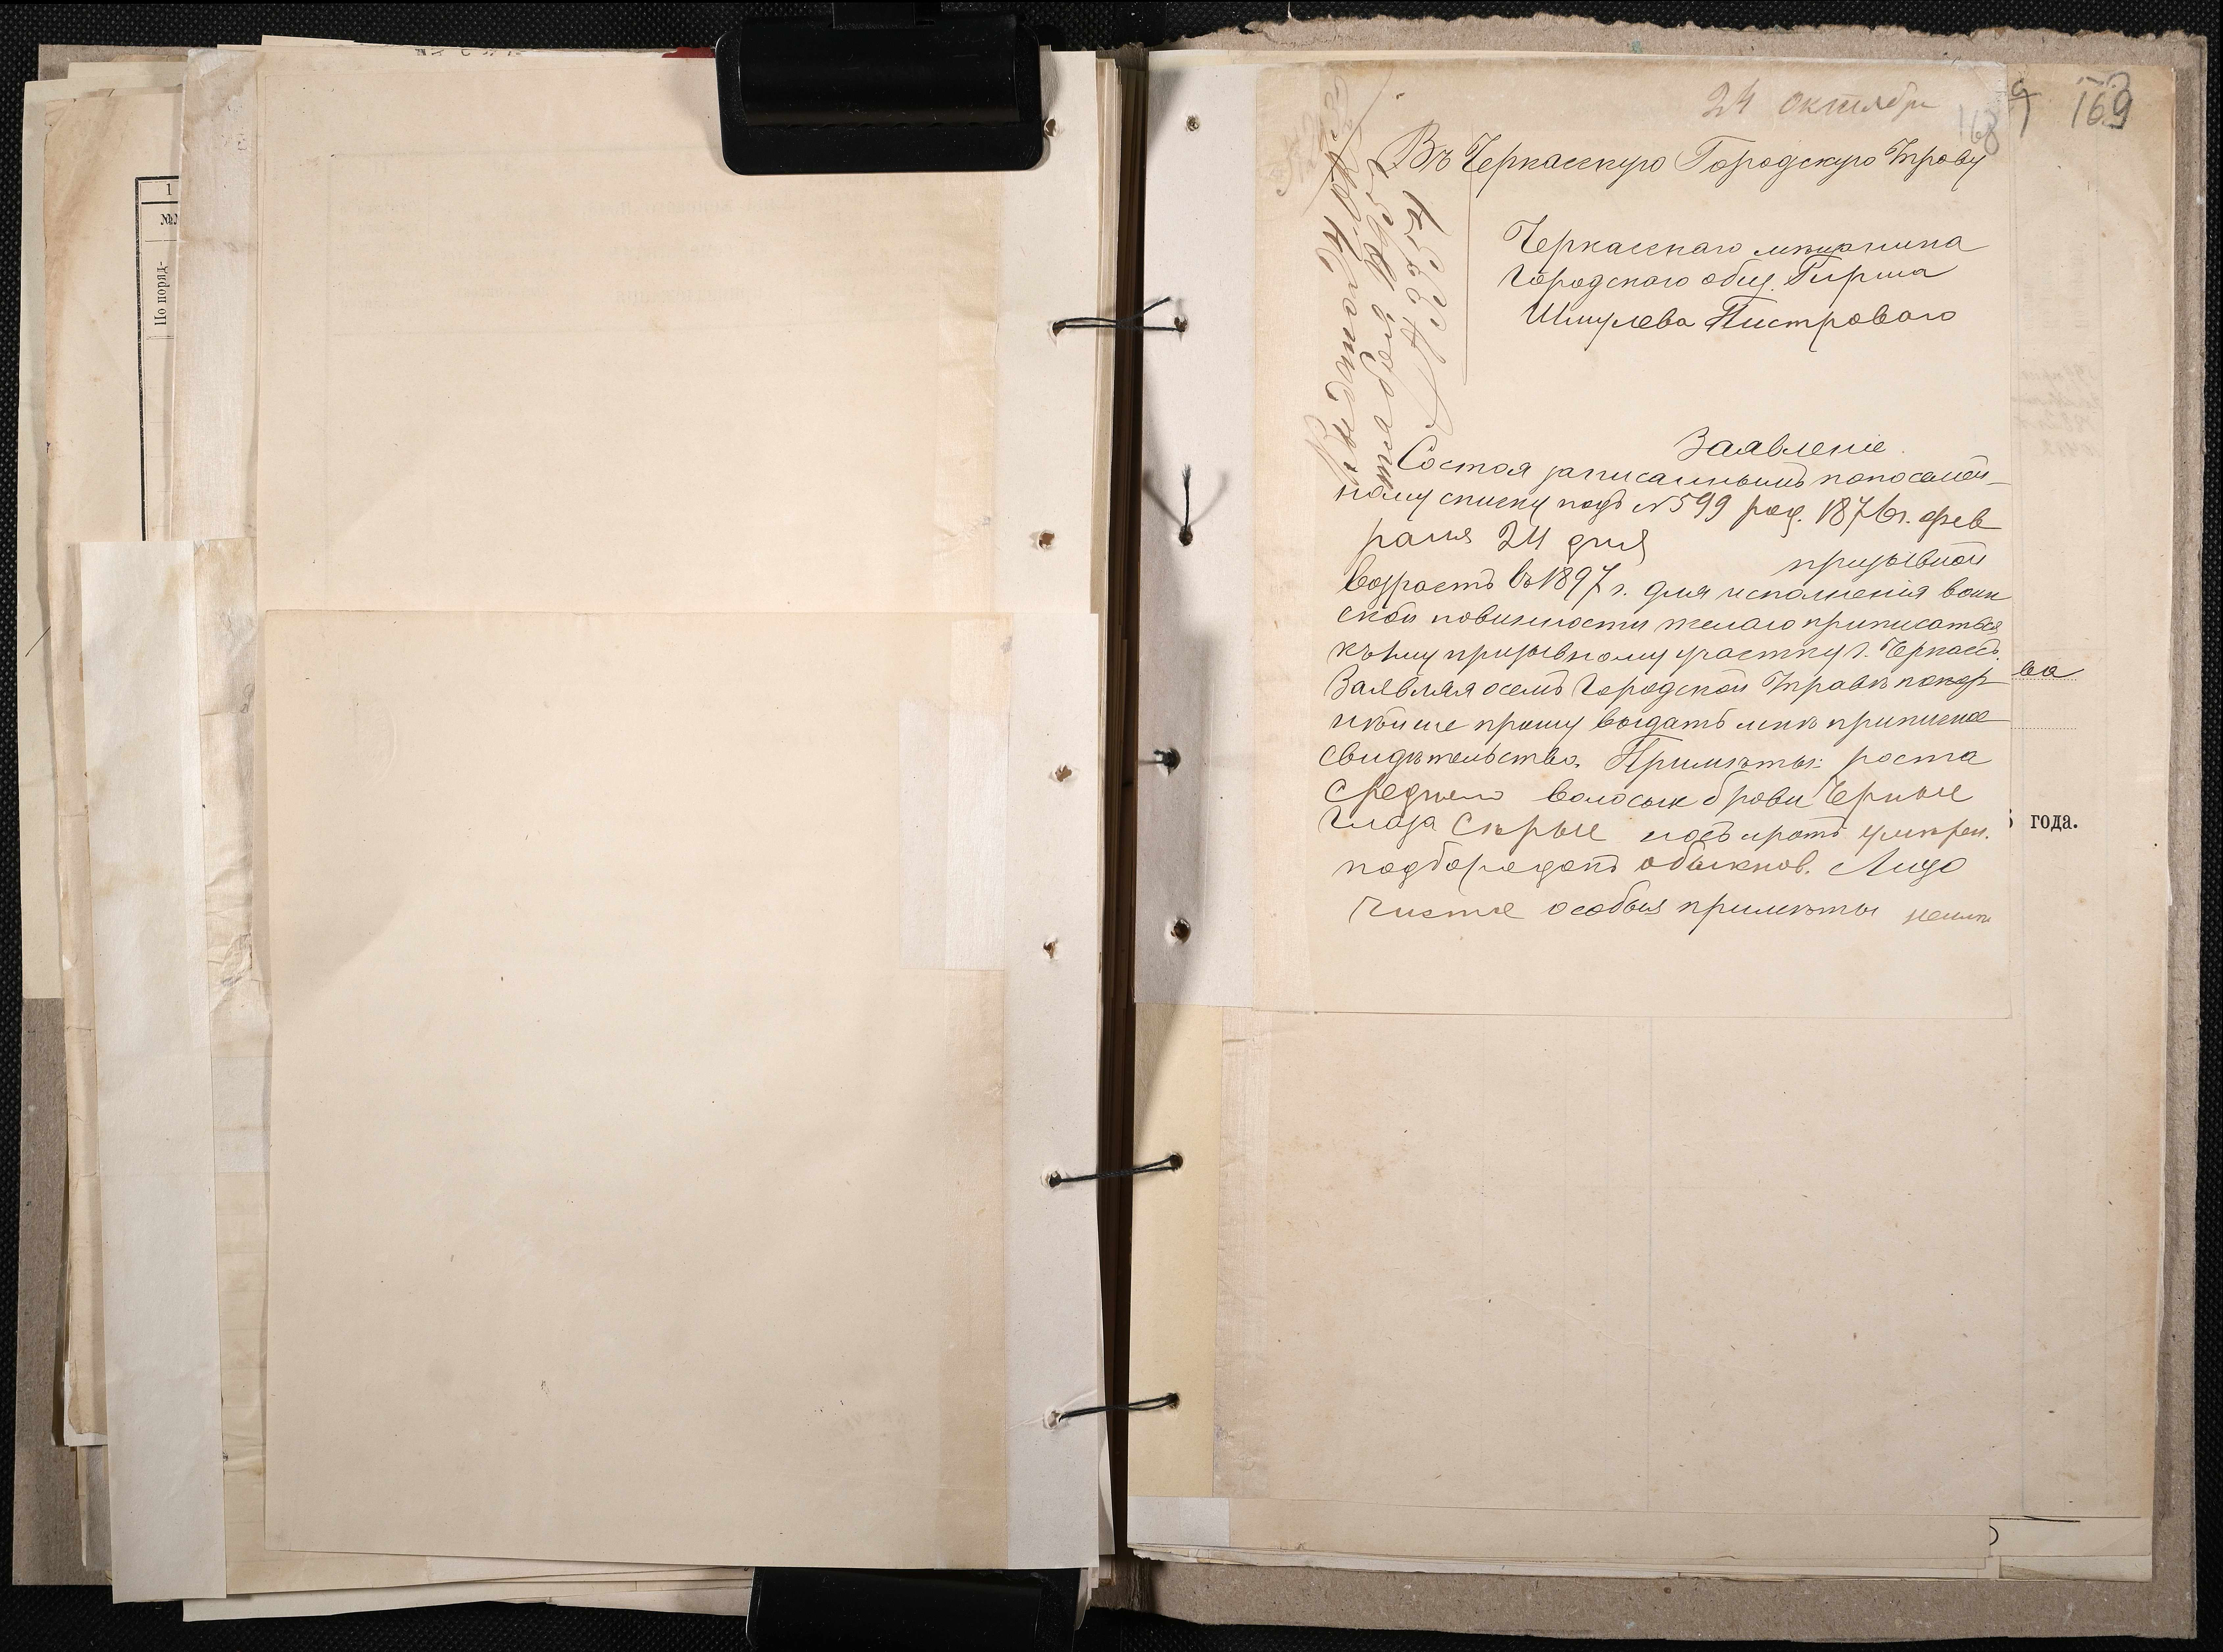 1
№№
По поряд-
24 октября
168
169
Въ Черкасскую Городскую Управу
Черкасскаго мѣщанина
Городского общ. Гирша
Шмулева Пистроваго
Заявленіе
Состоя записаннымъ по посемей-
ному списку подъ №599 род. 1876 г. фев
раля 24 дня
призывной
возрастъ въ 1897 г. для исполненія воин
ской повинности желаю приписаться
къ 1му призывному участку г. Черкассъ.
Заявляя о семъ Городской Управѣ покор
нѣйше прошу выдать мнѣ приписное
свидѣтельство. Примѣты: роста
Средняго волосы и брови Черные
Глаза Сѣрые носъ и ротъ умѣрен.
подбородокъ обыкнов. Лицо
Чистое особыя примѣты неимѣ
ва
года.